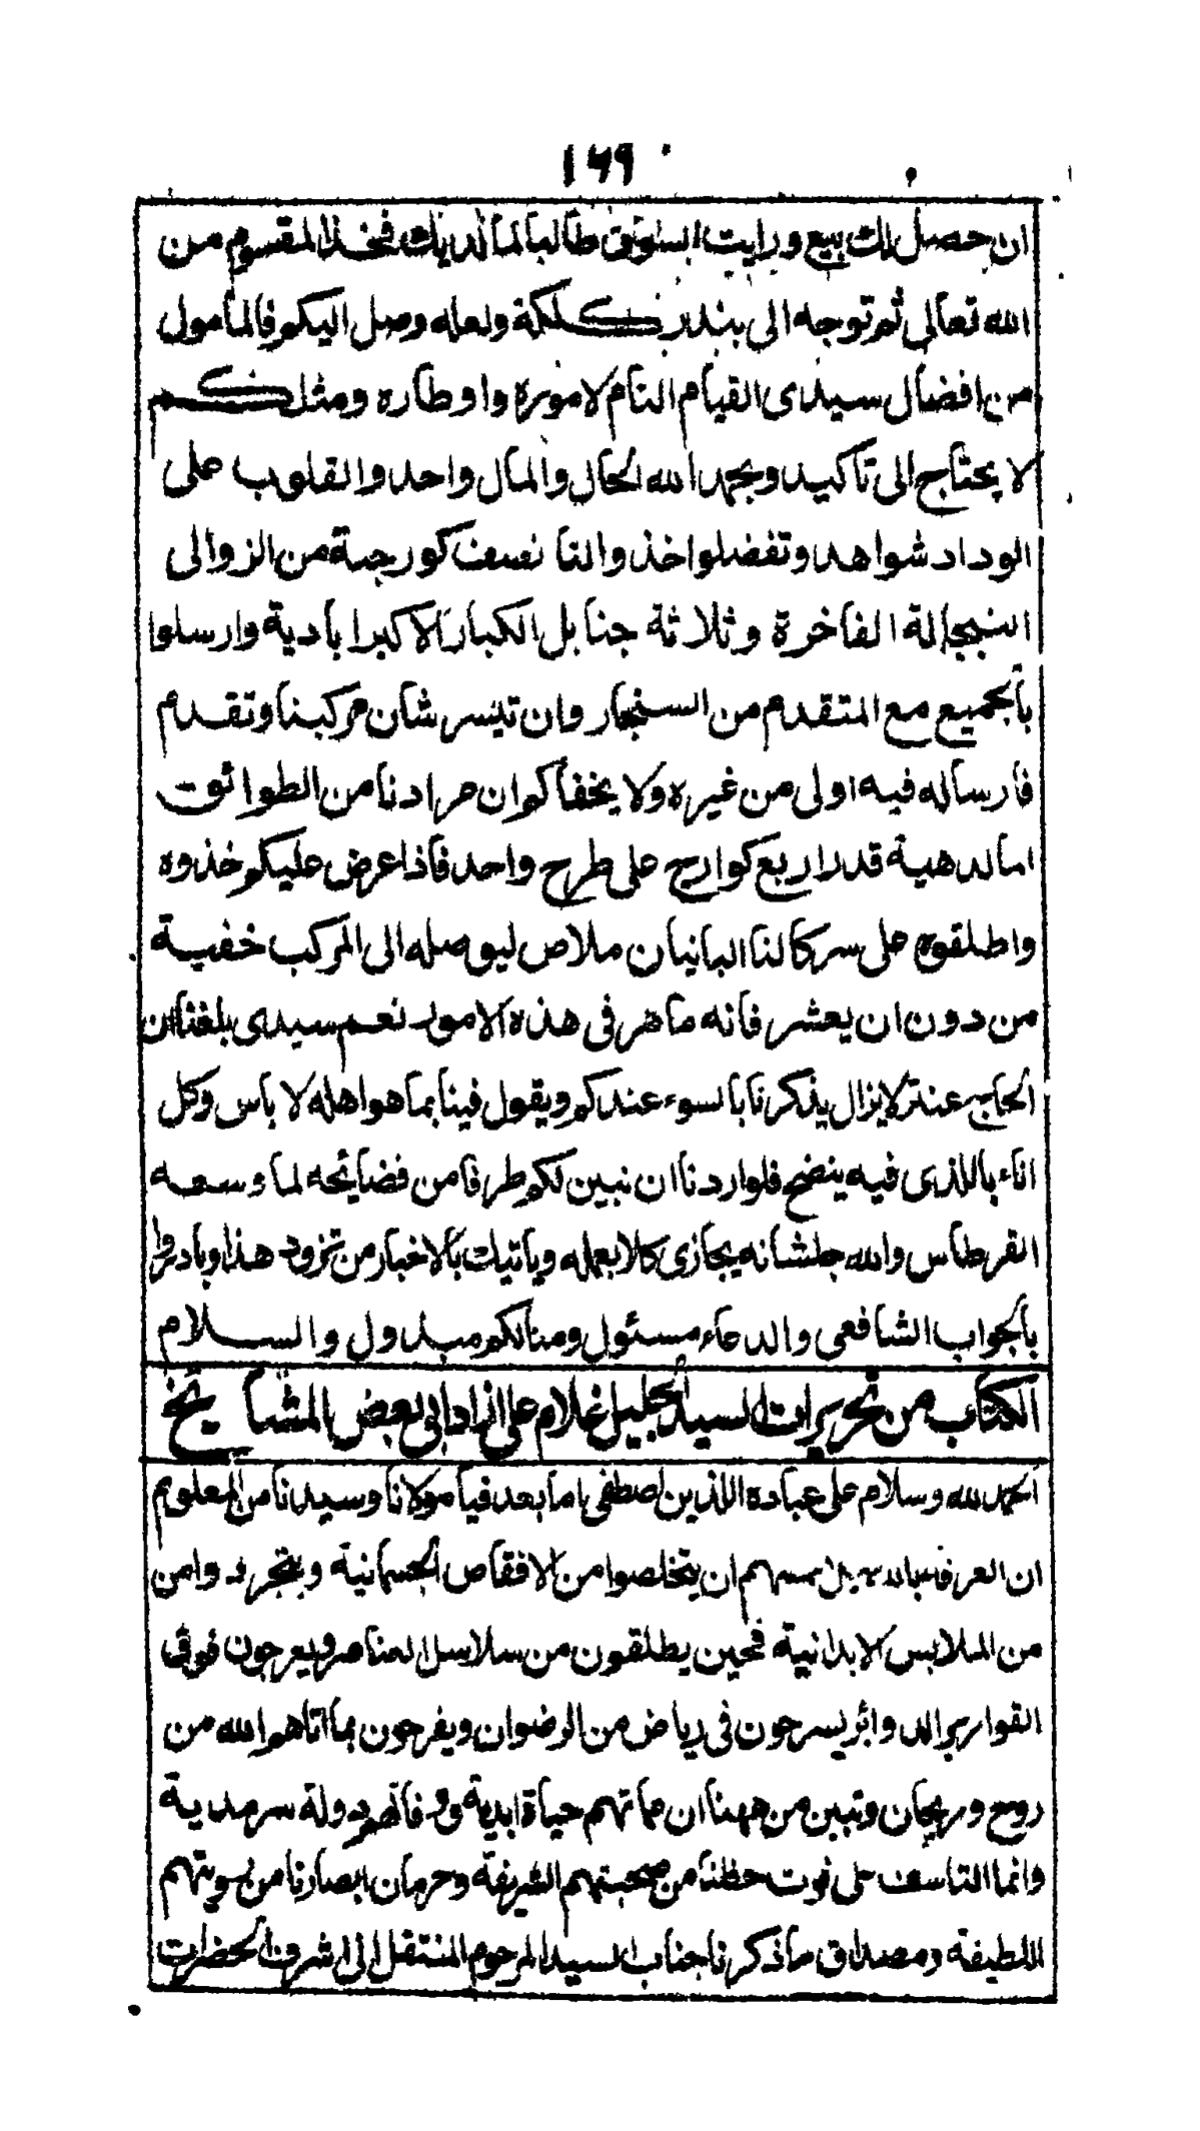 ١٦٩
ان حصل لك بيع ورايت السوق طالبا لما لديك فخذ المقسوم من
الله تعالى ثم توجه الى بندر كلكتة ولعله وصل اليكم فالمأمول
من افضال سيدى القيام التام لاموره واوطاره ومثلكم
لا يحتاج الى تاكيد وبحمد الله الحال والمال واحد والقلوب على
الوداد شواهد وتفضلوا خذوا لنا نصف كورجة من الزوالى
الفاخرة وثلاثة جنابل الكبار الاكبرابادية وارسلوا
بالجميع مع المتقدم من السنجار وان تيسر شان مركبنا وتقدم
فارساله فيه اولى من غيره ولا يخفاكم ان مرادنا من الطوائق
قدر اربع كوارج على طرح واحد فاذا عرض عليكم خذوه
واطلقوه على سركالنا البانيان ملاص ليوصله الى المركب خفية
من دون ان يعشر فانه ماهر فى هذه الامور نعم سيدى بلغنا ان
الحاج عنتر لا يزال يذكرنا بالسوء عندكم ويقول فينا بما هو اهله لا باس وكل
اناء بالذى فيه ينضح فلو اردنا ان نبين لكم طرفا من فضايحه لما وسعه
القرطاس والله جلشانه يجازى كلا بعمله وياتيك بالاخبار من لم تزود هذا وبادروا
بالجواب الشافعى والدعاء مسئول ومنا لكم مبذول والسلام
الكتاب من تحريرات السيد الجليل غلام على ازاد الى بعض المشايخ
الحمد لله وسلام على عباده الذين اصطفى اما بعد فيا مولانا وسيدنا من المعلوم
ان العرفاء ان يتخلصوا من الاقفاص الجسمانية ويتجردوا من
من الملابس الابدانية فحين يطلقون من سلاسل العناصر ويعرجون فوق
القوارير الدوائر يسرحون فى رياض من الرضوان ويفرحون بما اتاهم الله من
روح وريحان وتبين من ههنا ان مماتهم حياة ابدية ووفاتهم دولة سرمدية
وانما التاسف على فوت حظنا من صحبتهم الشريفة وحرمان ابصارنا من رويتهم
اللطيفة ومصداق ما ذكرنا جناب السيد المرحوم المنتقل الى اشرف الحضرات